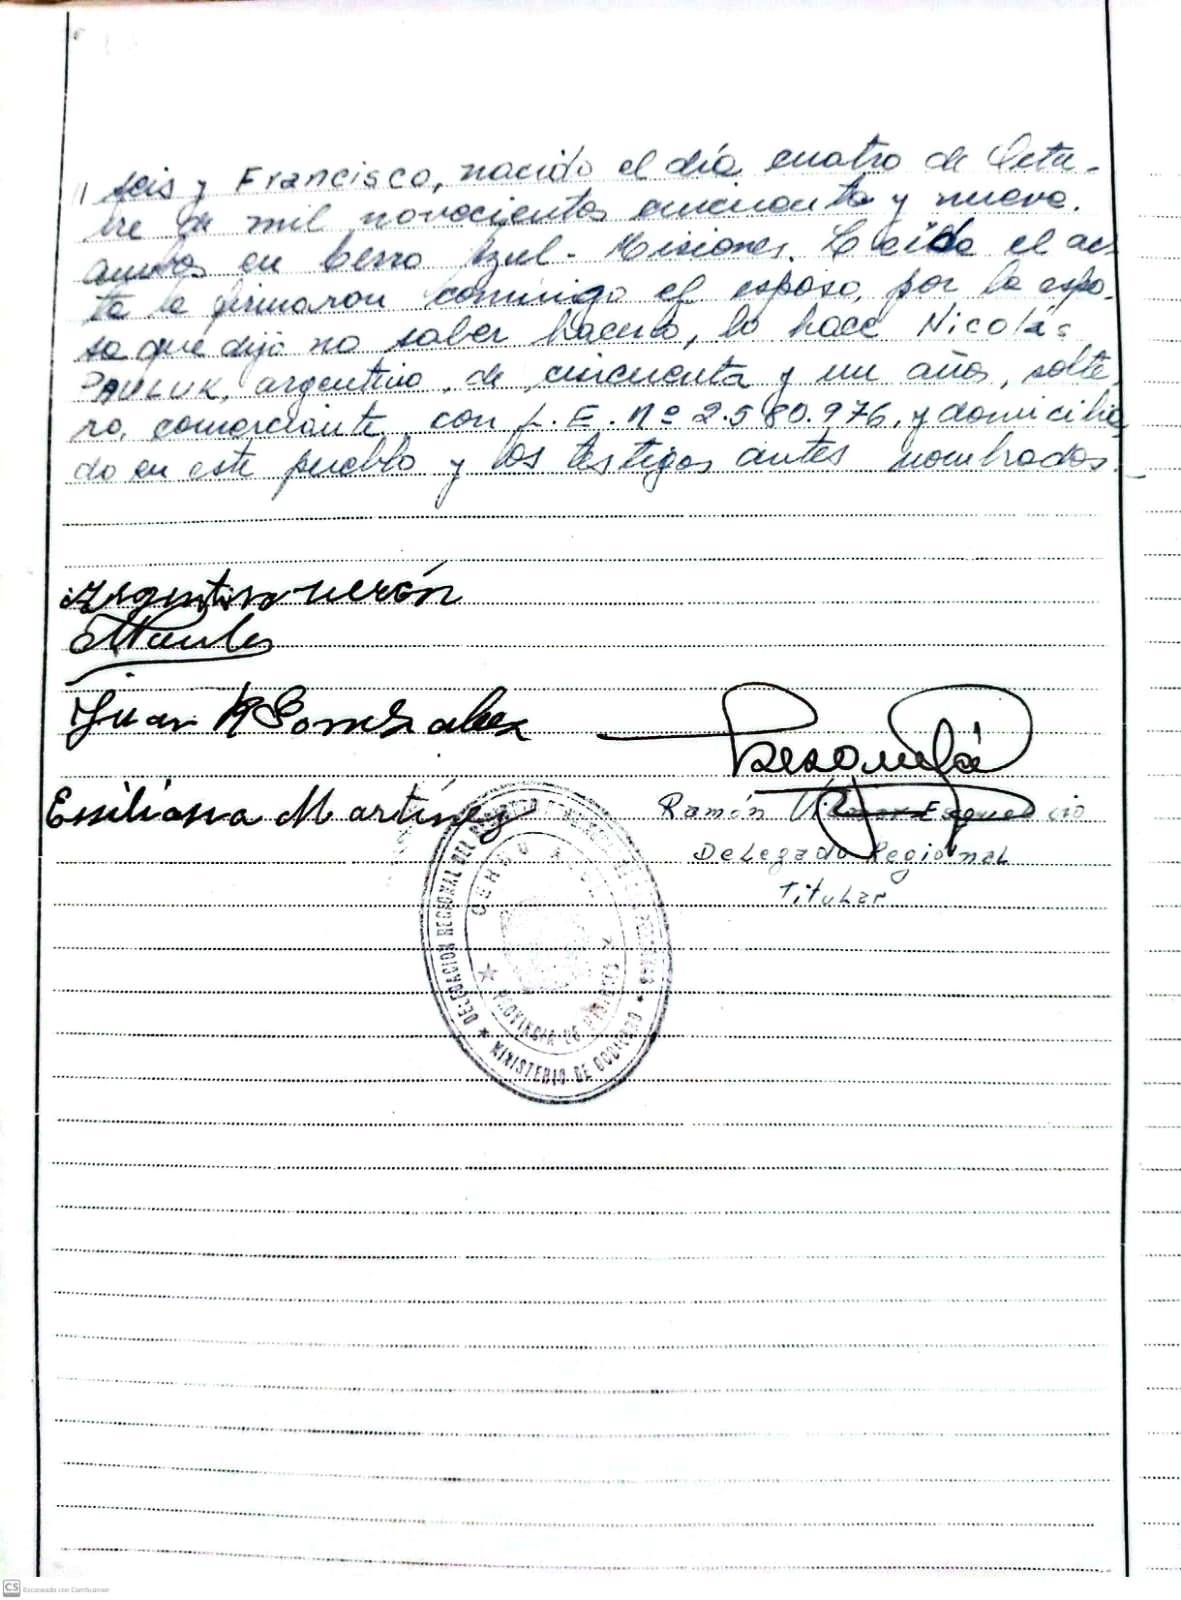 // seis y Francisco, nacido el día cuatro de Octu-
bre de mil novecientos cincuenta y nueve.
ambos en Cerro Azul - Misiones. Leída el ac-
ta la firmaron conmigo el esposo, por la espo-
sa que dijo no saber hacerlo, lo hace Nicolás
PAULUK, argentino, de cincuenta y un años, solte-
ro, comerciante, con L.E. Nº 2.580.976, y domicilia
do en este pueblo y los testigos antes nombrados.
Argentino Verón
Juan R Gomzalez
Emiliana Martínez
Ramón
Delegado Regional
Titular
DELEGACION REGIONAL DEL REGISTRO
CERRO AZUL
PROVINCIA DE MISIONES
MINISTERIO DE GOBIERNO
CS Escaneado con CamScanner